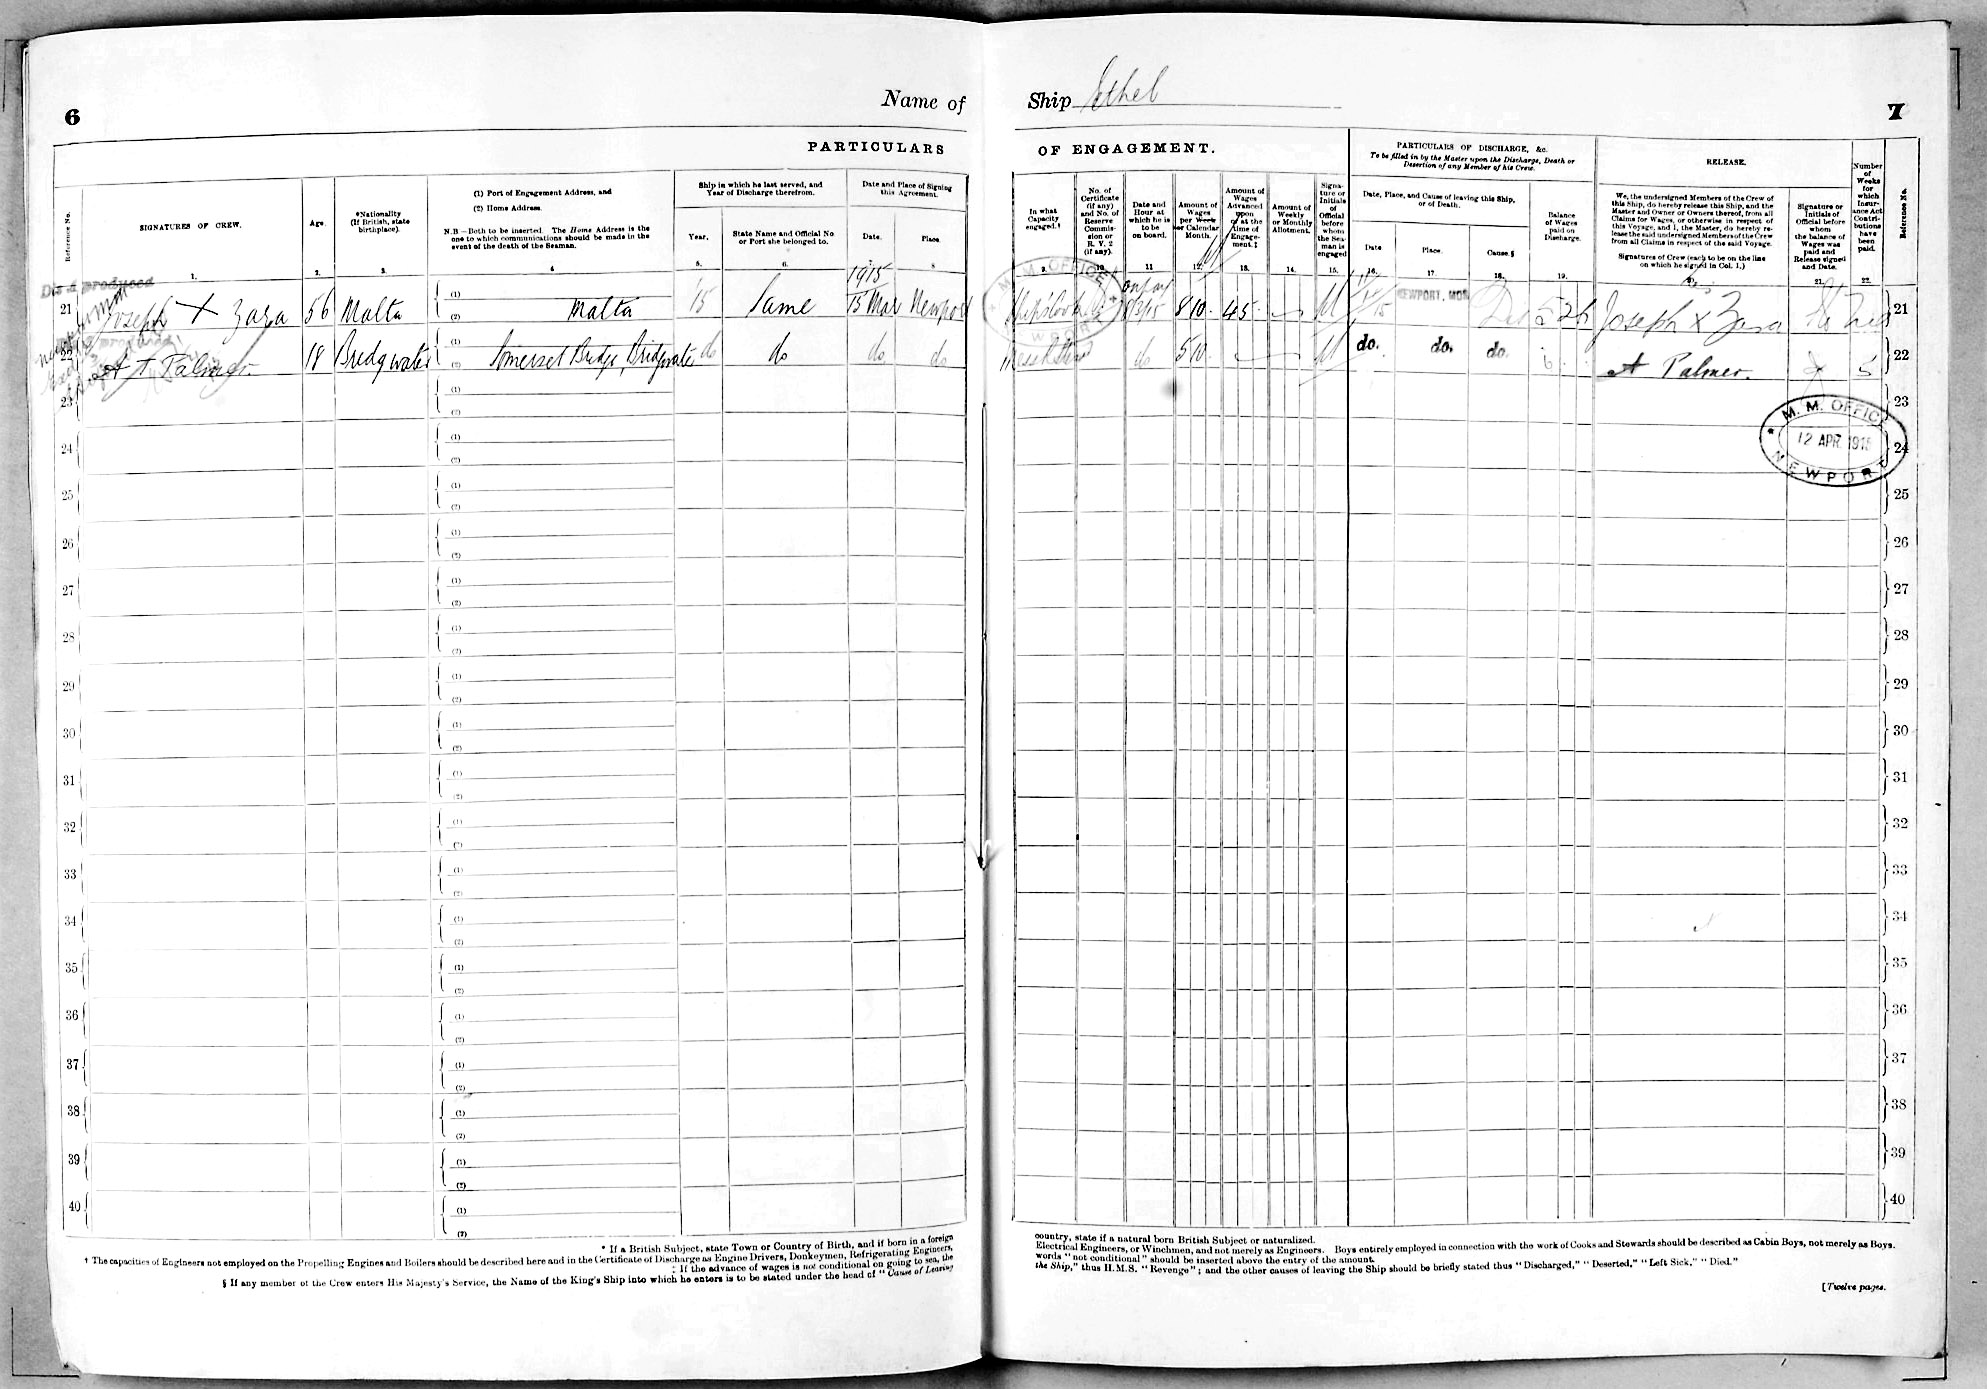 6
Name of
PARTICULARS
Reference No.
SIGNATURES OF CREW.
Age.
*Nationality
(If British, state
birthplace).
(1) Port of Engagement Address, and
(2) Home Address.
N.B.—Both to be inserted. The Home Address is the
one to which communications should be made in the
event of the death of the Seaman.
Ship in which he last served, and
Year of Discharge therefrom.
Year.
State Name and Official No.
or Port she belonged to.
Date and Place of Signing
this Agreement.
Date.
Place.
1.
2.
3.
4
5.
6.
7.
8
1915
Dis A produced
21 Joseph X Zara 56 Malta (1) (2) Malta 15 Same 15 Mar Newport
22 A J Palmer 18 Bridgwater (1) (2) Somerset Bridge, Bridgwater do do do do
23 (1) (2)
24 (1) (2)
25 (1) (2)
26 (1) (2)
27 (1) (2)
28 (1) (2)
29 (1) (2)
30 (1) (2)
31 (1) (2)
32 (1) (2)
33 (1) (2)
34 (1) (2)
35 (1) (2)
36 (1) (2)
37 (1) (2)
38 (1) (2)
39 (1) (2)
40 (1) (2)
* If a British Subject, state Town or Country of Birth, and if born in a foreign
† The capacities of Engineers not employed on the Propelling Engines and Boilers should be described here and in the Certificate of Discharge as Engine Drivers, Donkeymen, Refrigerating Engineers,
‡ If the advance of wages is not conditional on going to sea, the
§ If any member of the Crew enters His Majesty's Service, the Name of the King's Ship into which he enters is to be stated under the head of "Cause of Leaving
Ship Ethel
7
OF ENGAGEMENT.
PARTICULARS OF DISCHARGE, &c.
To be filled in by the Master upon the Discharge, Death or
Desertion of any Member of his Crew.
RELEASE.
In what
Capacity
engaged.†
No. of
Certificate
(if any)
and No. of
Reserve
Commis-
sion or
R. V. 2
(if any).
Date and
Hour at
which he is
to be
on board.
Amount of
Wages
per Week
or Calendar
Month.
Amount of
Wages
Advanced
upon
or at the
time of
Engage-
ment.‡
Amount of
Weekly
or Monthly
Allotment.
Signa-
ture or
Initials
of
Official
before
whom
the Sea-
man is
engaged
Date, Place, and Cause of leaving this Ship,
or of Death.
Date
Place.
Cause.§
Balance
of Wages
paid on
Discharge.
We, the undersigned Members of the Crew of
this Ship, do hereby release this Ship, and the
Master and Owner or Owners thereof, from all
Claims for Wages, or otherwise in respect of
this Voyage, and I, the Master, do hereby re-
lease the said undersigned Members of the Crew
from all Claims in respect of the said Voyage.
Signatures of Crew (each to be on the line
on which he signed in Col. 1.)
Signature or
Initials of
Official before
whom
the balance of
Wages was
paid and
Release signed
and Date.
Number
of
Weeks
for
which
Insur-
ance Act
Contri-
butions
have
been
paid.
Reference No.
9.
10.
11
12.
13.
14.
15.
16.
17.
18.
19.
21.
22.
M. M. OFFICE
NEWPORT
8 10 45 NEWPORT, MON Joseph X Zara 21
do 5 10 do. do. do. A Palmer. 22
23
M. M. OFFICE
12 APR 1915
NEWPORT
24
25
26
27
28
29
30
31
32
33
34
35
36
37
38
39
40
country, state if a natural born British Subject or naturalized.
Electrical Engineers, or Winchmen, and not merely as Engineers. Boys entirely employed in connection with the work of Cooks and Stewards should be described as Cabin Boys, not merely as Boys.
words "not conditional" should be inserted above the entry of the amount.
the Ship," thus H.M.S. "Revenge"; and the other causes of leaving the Ship should be briefly stated thus "Discharged," "Deserted," "Left Sick," "Died."
[Twelve pages.